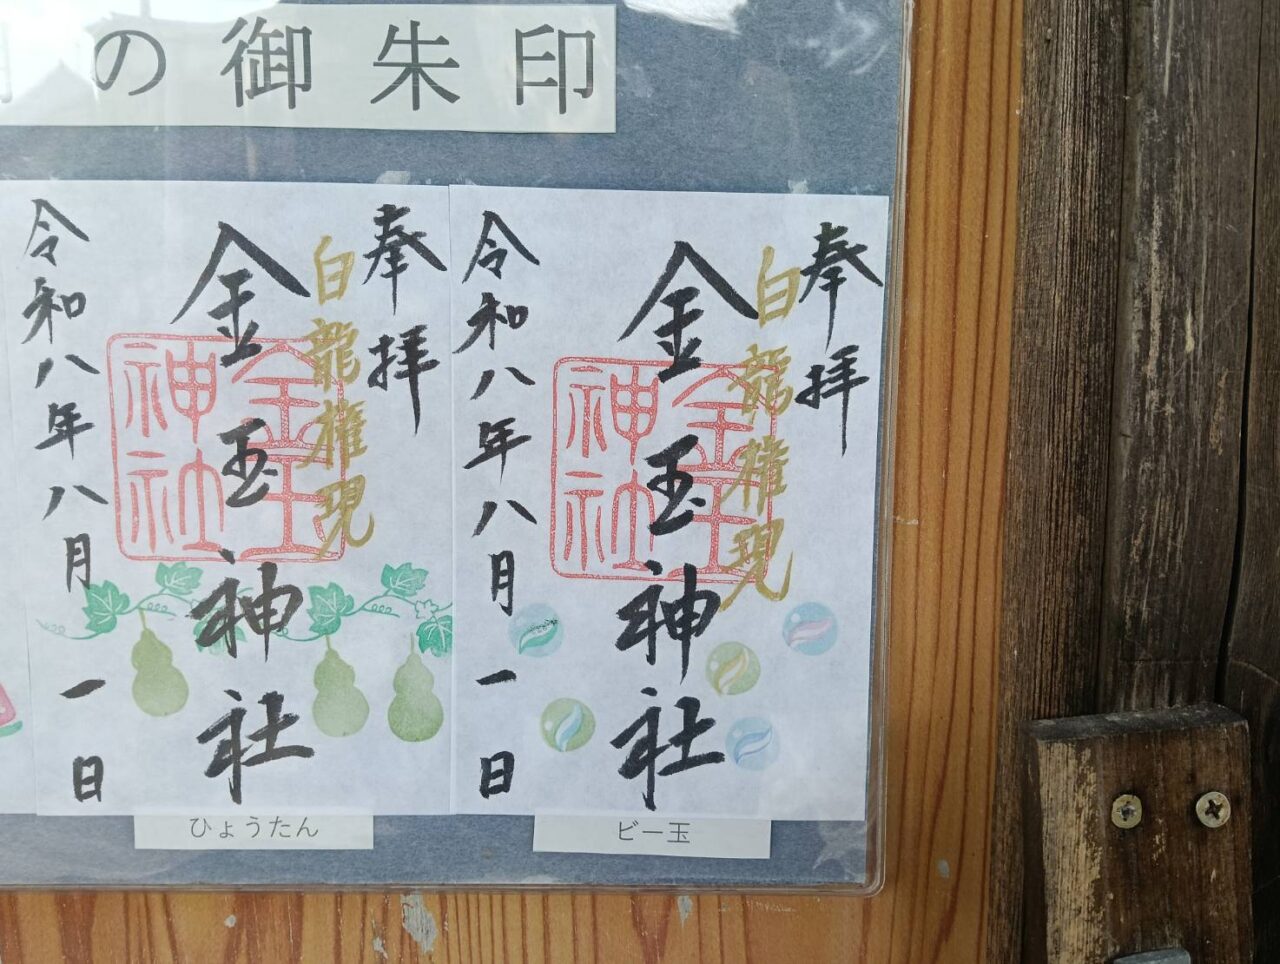 の御朱印
奉拝
白龍権現
金玉神社
金玉神社
令和八年八月一日
ビー玉
奉拝
白龍権現
金玉神社
金玉神社
令和八年八月一日
ひょうたん